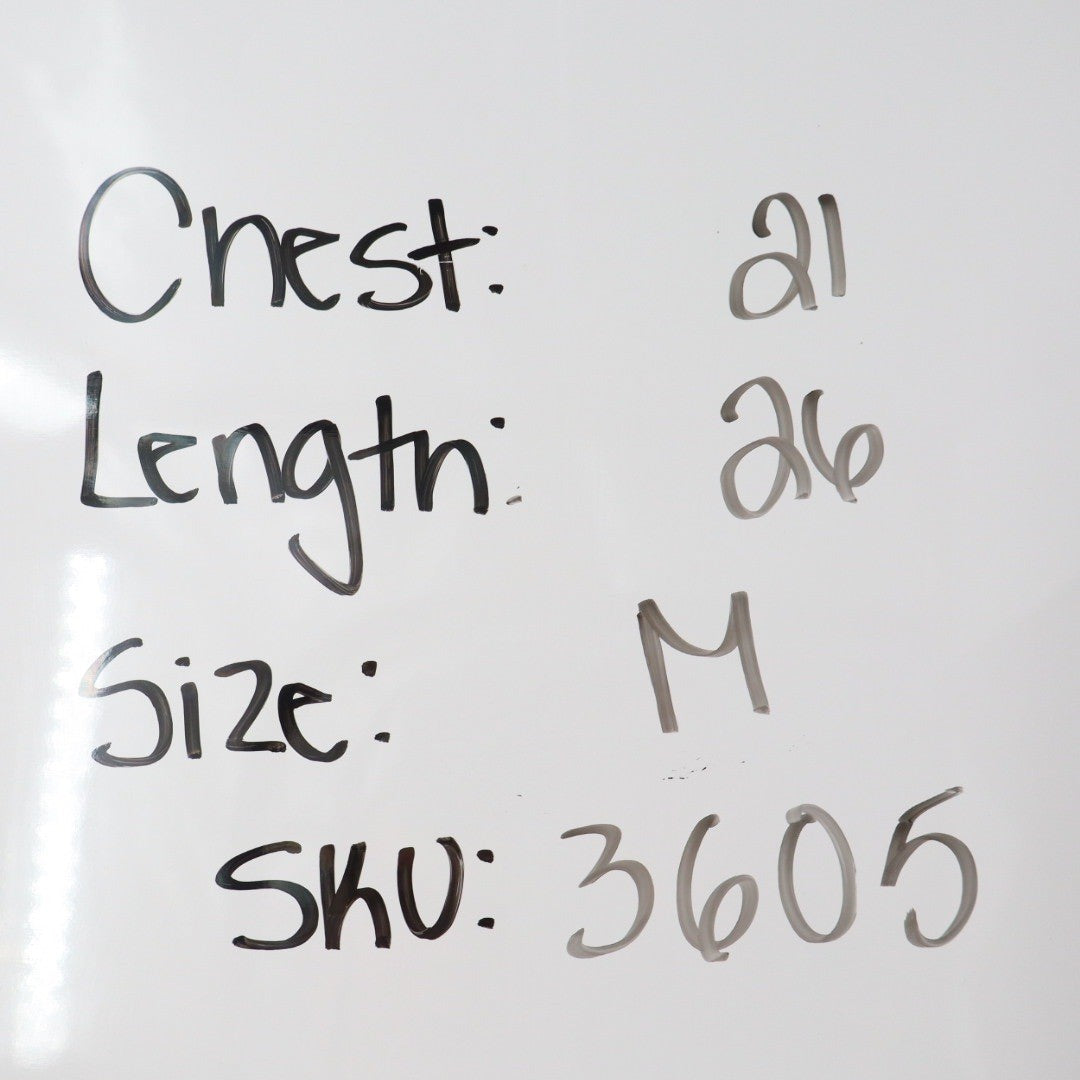 Chest: 21
Length: 26
Size: M
SKU: 3605